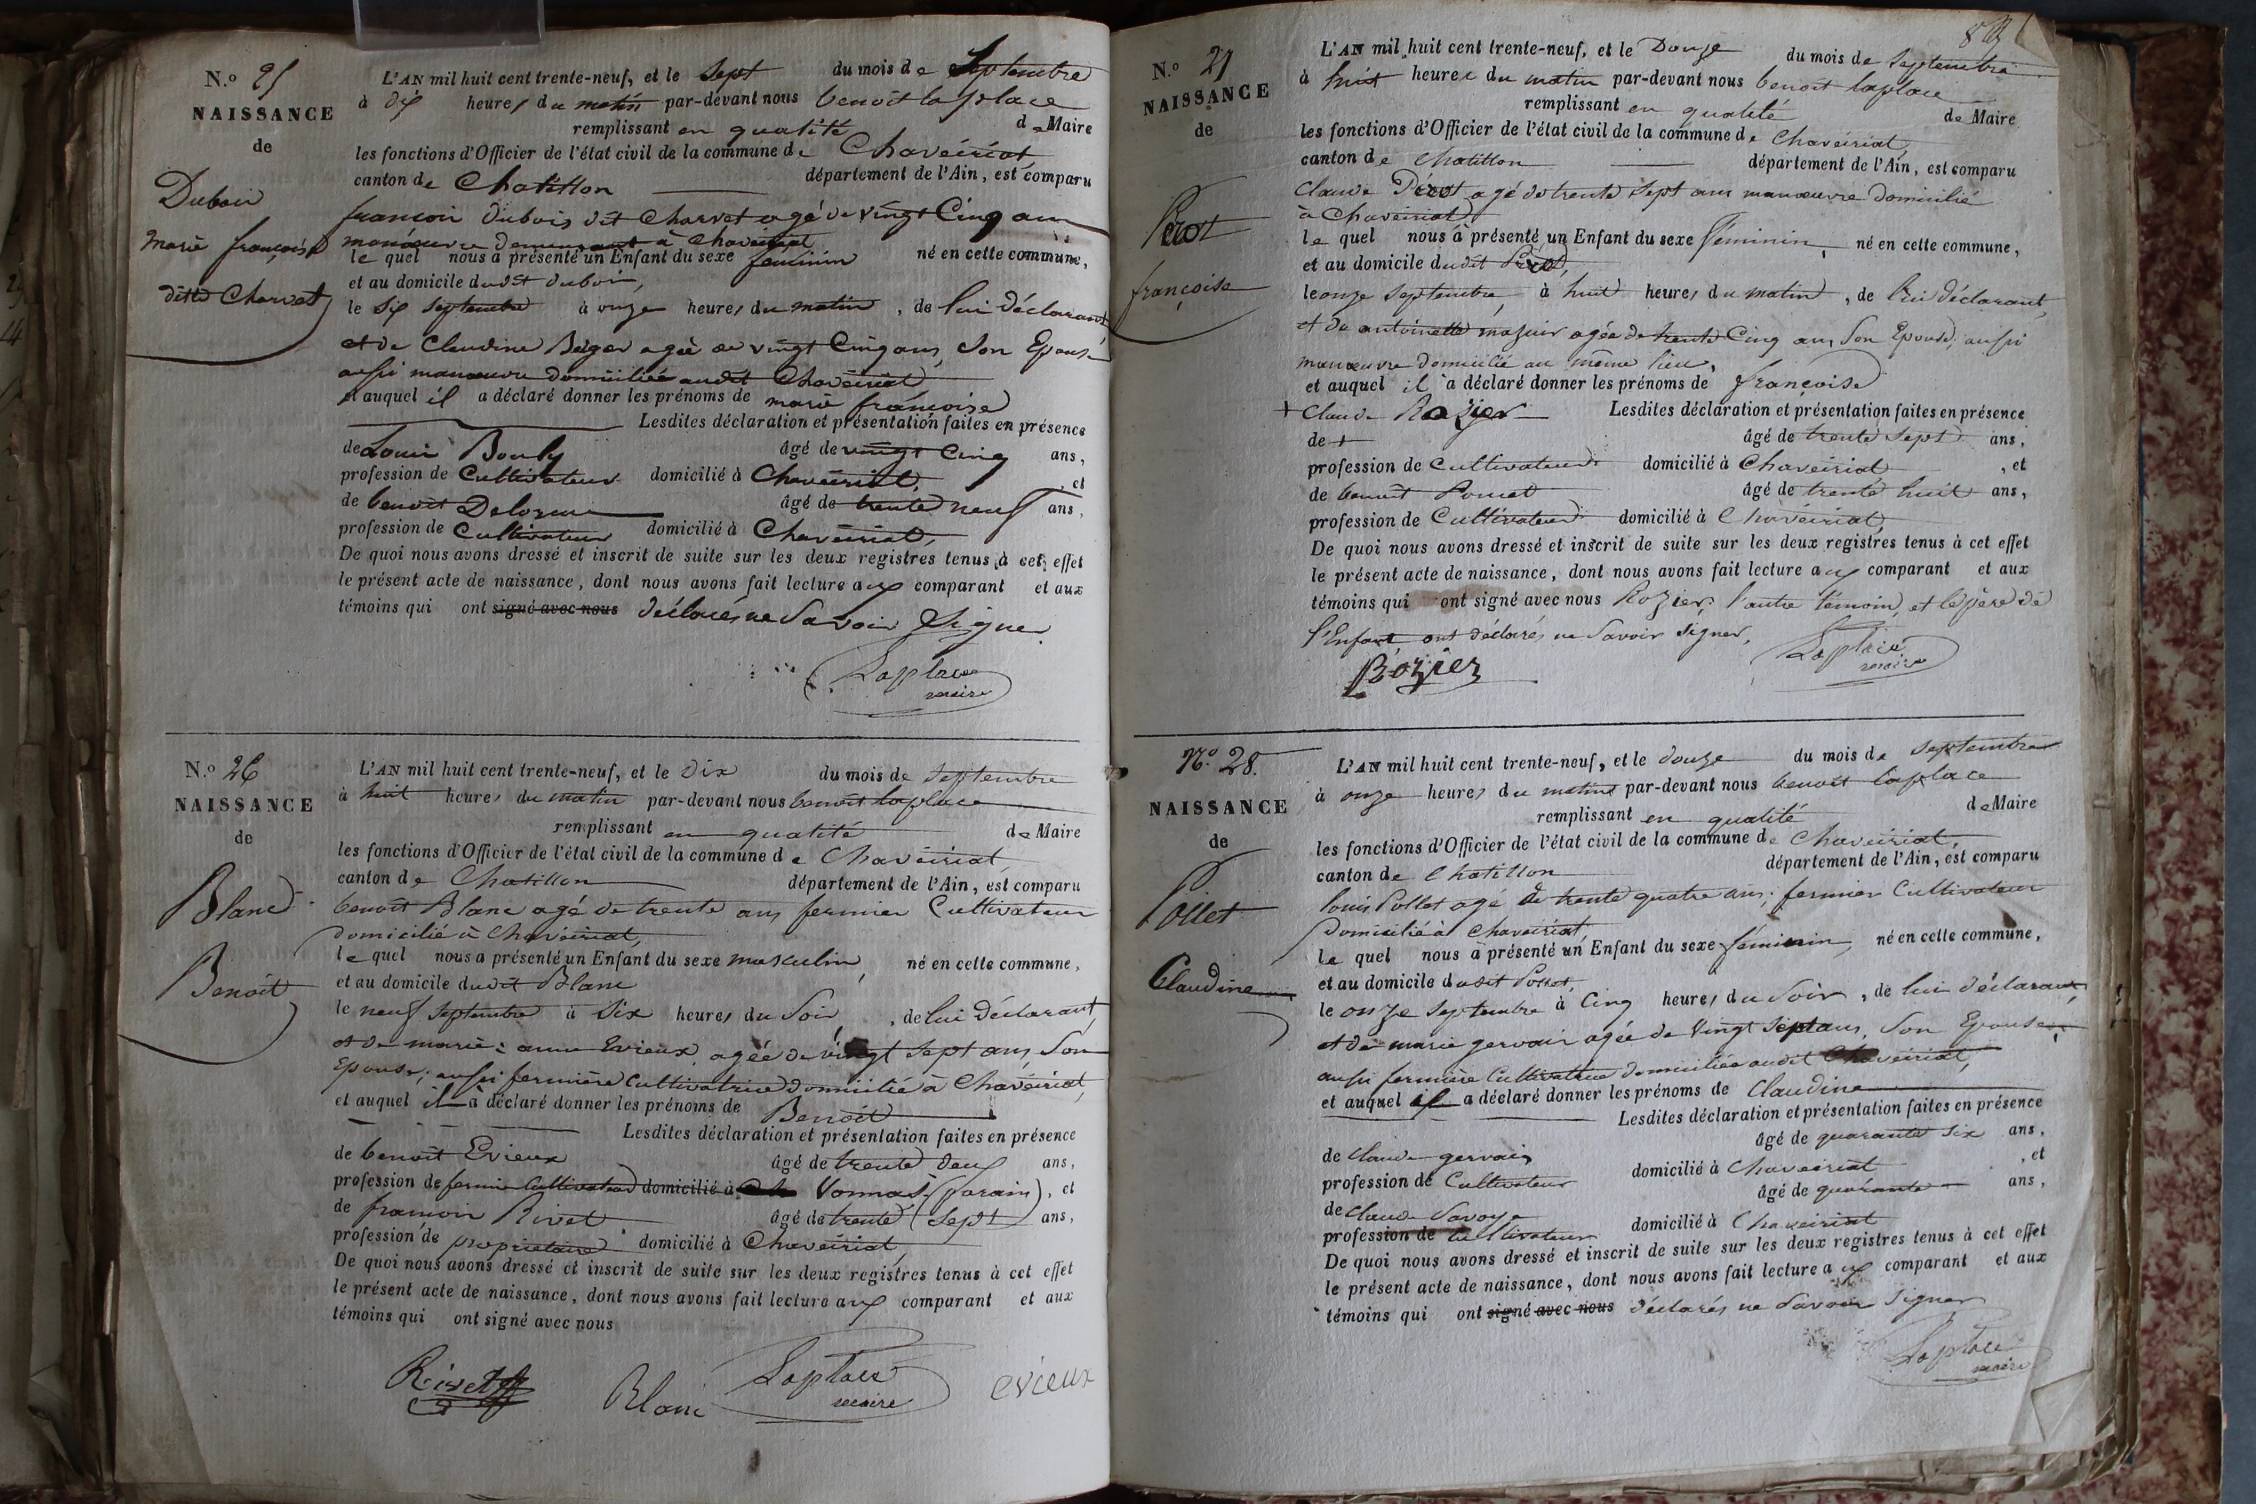 N.o 25
NAISSANCE
de
Dubois
marie françoise
ditte Charvet
L'AN mil huit cent trente-neuf, et le sept du mois de Septembre
à dix heures du matin par-devant nous benoît laplace
remplissant en qualité de Maire
les fonctions d'Officier de l'état civil de la commune de Chaveiriat
canton de Chatillon département de l'Ain, est comparu
francois Dubois dit Charvet agé de vingt Cinq ans
manœuvre demeurant à Chaveiriat
le quel nous a présenté un Enfant du sexe feminin né en cette commune,
et au domicile dudit dubois,
le six septembre à onze heures du matin, de lui déclarant
et de Claudine Beger agée de vingt Cinq ans, Son Epouse
aussi manœuvre domiciliée audit Chaveiriat
et auquel il a déclaré donner les prénoms de marie françoise
Lesdites déclaration et présentation faites en présence
de Louis Bouly âgé de vingt Cinq ans,
profession de Cultivateur domicilié à Chaveiriat, et
de benoit Delorme âgé de trente neuf ans,
profession de Cultivateur domicilié à Chaveiriat,
De quoi nous avons dressé et inscrit de suite sur les deux registres tenus à cet effet
le présent acte de naissance, dont nous avons fait lecture aux comparant et aux
témoins qui ont signé avec nous déclarés ne Savoir Signer.
Laplace
maire
N.o 26
NAISSANCE
de
Blanc
Benoit
L'AN mil huit cent trente-neuf, et le dix du mois de septembre
à huit heures du matin par-devant nous benoît laplace
remplissant en qualité de Maire
les fonctions d'Officier de l'état civil de la commune de Chaveiriat
canton de Chatillon département de l'Ain, est comparu
benoit Blanc agé de trente ans fermier Cultivateur
domicilié à Chaveiriat,
le quel nous a présenté un Enfant du sexe masculin, né en cette commune,
et au domicile dudit Blanc
le neuf septembre à Six heures du Soir, de lui déclarant,
et de marie anne Evieux agée de vingt sept ans, Son
Epouse, aussi fermière Cultivatrice domicilié à Chaveiriat,
et auquel il a déclaré donner les prénoms de Benoit
Lesdites déclaration et présentation faites en présence
de benoit Evieux âgé de trente deux ans,
profession de fermier Cultivateur domicilié à Vonnas (parain), et
de francois Rivet âgé de trente sept ans,
profession de proprietaire domicilié à Chaveiriat,
De quoi nous avons dressé et inscrit de suite sur les deux registres tenus à cet effet
le présent acte de naissance, dont nous avons fait lecture aux comparant et aux
témoins qui ont signé avec nous
Rivet Blanc Laplace evieux
maire
N.o 27
NAISSANCE
de
Perot
françoise
L'AN mil huit cent trente-neuf, et le Douze du mois de septembre
à huit heures du matin par-devant nous benoit laplace
remplissant en qualité de Maire
les fonctions d'Officier de l'état civil de la commune de Chaveiriat,
canton de Chatillon département de l'Ain, est comparu
Claude Perot agé de trente sept ans manœuvre domicilié
à Chaveiriat,
le quel nous a présenté un Enfant du sexe féminin, né en cette commune,
et au domicile dudit Perot,
le onze septembre, à huit heures du matin, de lui déclarant,
et de antoinette mazuir agée de trente Cinq ans, Son Epouse, aussi
manœuvre domicilié au même lieu,
et auquel il a déclaré donner les prénoms de françoise
+ Claude Rozier Lesdites déclaration et présentation faites en présence
de + âgé de trente sept ans,
profession de Cultivateur domicilié à Chaveiriat, et
de benoit Poncet âgé de trente huit ans,
profession de Cultivateur domicilié à Chaveiriat,
De quoi nous avons dressé et inscrit de suite sur les deux registres tenus à cet effet
le présent acte de naissance, dont nous avons fait lecture aux comparant et aux
témoins qui ont signé avec nous Rozier, l'autre témoin, et le père de
l'Enfant ont déclarés ne Savoir signer,
Rozier Laplace
maire
N.o 28.
NAISSANCE
de
Pollet
Claudine
L'AN mil huit cent trente-neuf, et le douze du mois de septembre
à onze heures du matin par-devant nous benoit laplace
remplissant en qualité de Maire
les fonctions d'Officier de l'état civil de la commune de Chaveiriat,
canton de Chatillon département de l'Ain, est comparu
louis Pollet agé de trente quatre ans, fermier Cultivateur
Domicilié à Chaveiriat
le quel nous a présenté un Enfant du sexe féminin, né en cette commune,
et au domicile dudit Pollet,
le onze septembre à Cinq heures du Soir, de lui déclarant,
et de marie gervais agée de Vingt Sept ans, Son Epouse,
aussi fermière Cultivatrice domiciliée audit Chaveiriat,
et auquel il a déclaré donner les prénoms de Claudine
Lesdites déclaration et présentation faites en présence
de Claude gervais âgé de quarante six ans,
profession de Cultivateur domicilié à Chaveiriat, et
de Claude Savoye âgé de quarante ans,
profession de Cultivateur domicilié à Chaveiriat
De quoi nous avons dressé et inscrit de suite sur les deux registres tenus à cet effet
le présent acte de naissance, dont nous avons fait lecture aux comparant et aux
témoins qui ont signé avec nous déclarés ne Savoir Signer
Laplace
maire